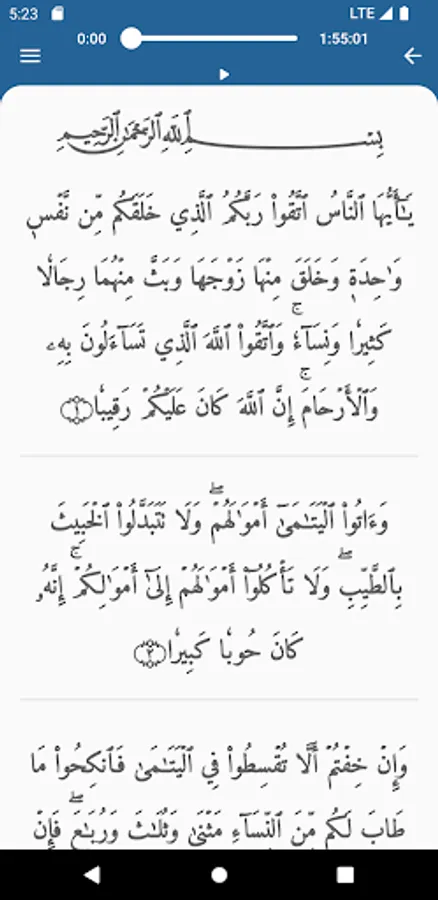 5:23 LTE
0:00 1:55:01
بِسْمِ ٱللَّهِ ٱلرَّحْمَٰنِ ٱلرَّحِيمِ
يَـٰٓأَيُّهَا ٱلنَّاسُ ٱتَّقُوا۟ رَبَّكُمُ ٱلَّذِي خَلَقَكُم مِّن نَّفْسٍ
وَٰحِدَةٍ وَخَلَقَ مِنْهَا زَوْجَهَا وَبَثَّ مِنْهُمَا رِجَالًا
كَثِيرًا وَنِسَآءً ۚ وَٱتَّقُوا۟ ٱللَّهَ ٱلَّذِي تَسَآءَلُونَ بِهِۦ
وَٱلْأَرْحَامَ ۚ إِنَّ ٱللَّهَ كَانَ عَلَيْكُمْ رَقِيبًا ۝١
وَءَاتُوا۟ ٱلْيَتَـٰمَىٰٓ أَمْوَٰلَهُمْ ۖ وَلَا تَتَبَدَّلُوا۟ ٱلْخَبِيثَ
بِٱلطَّيِّبِ ۖ وَلَا تَأْكُلُوٓا۟ أَمْوَٰلَهُمْ إِلَىٰٓ أَمْوَٰلِكُمْ ۚ إِنَّهُۥ
كَانَ حُوبًا كَبِيرًا ۝٢
وَإِنْ خِفْتُمْ أَلَّا تُقْسِطُوا۟ فِي ٱلْيَتَـٰمَىٰ فَٱنكِحُوا۟ مَا
طَابَ لَكُم مِّنَ ٱلنِّسَآءِ مَثْنَىٰ وَثُلَـٰثَ وَرُبَـٰعَ ۖ فَإِنْ